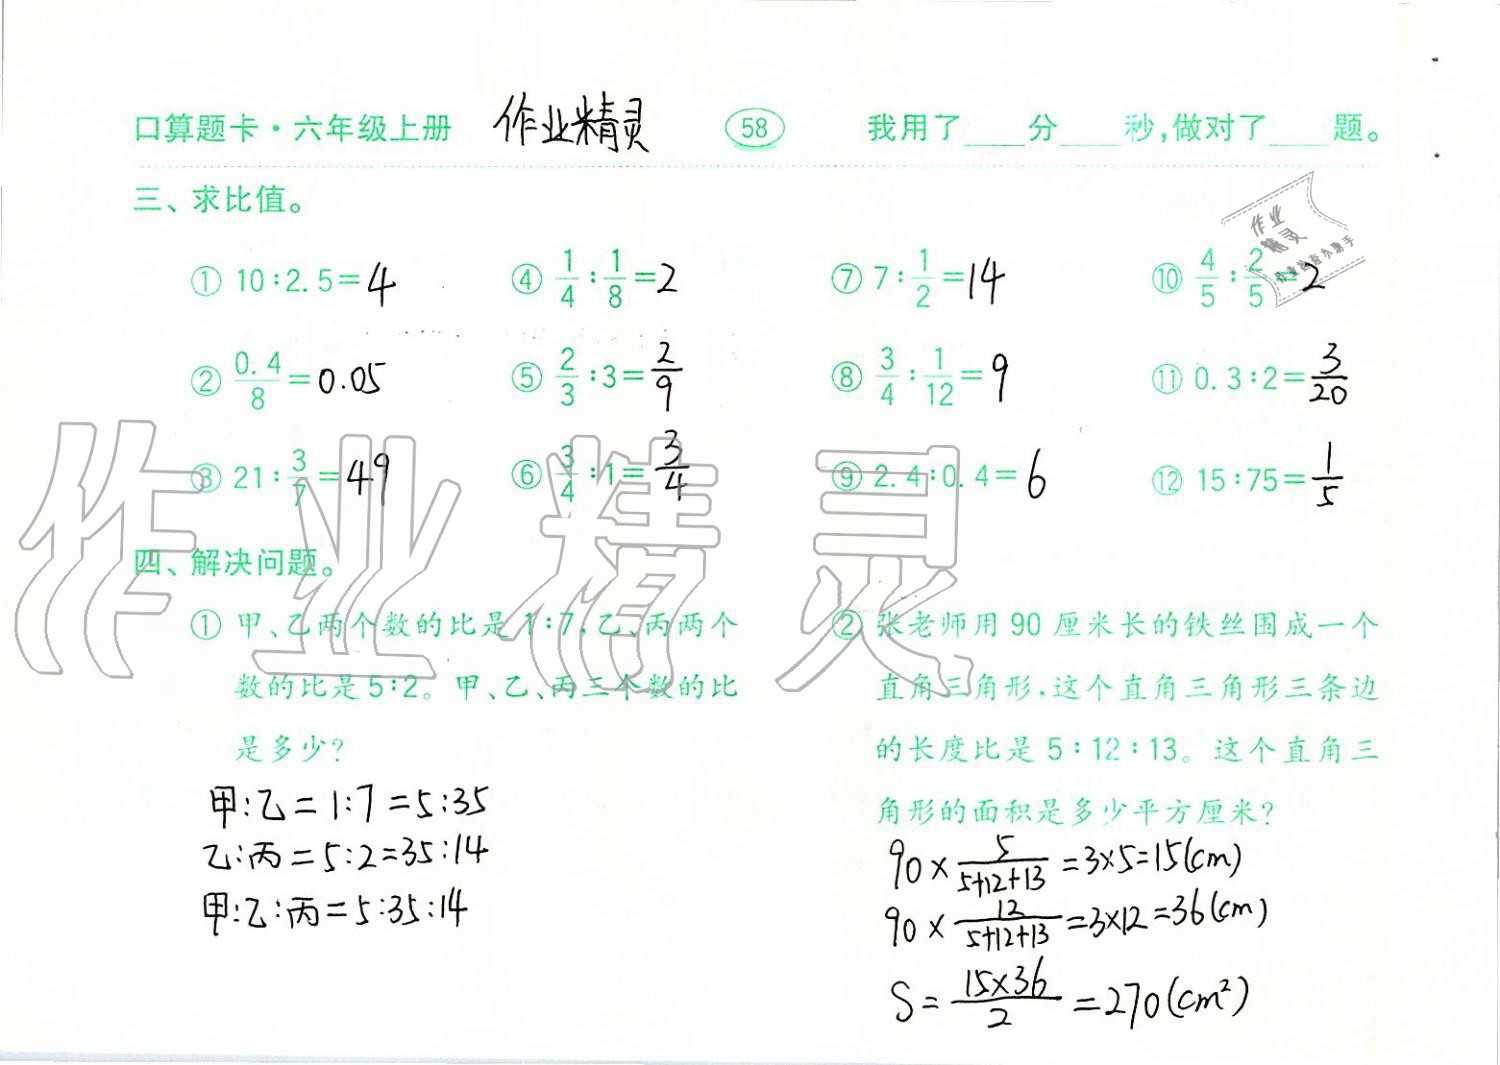 口算题卡·六年级上册 作业精灵 58 我用了____分____秒,做对了____题。
三、求比值。
① 10:2.5=4 ④ 1/4:1/8=2 ⑦ 7:1/2=14 ⑩ 4/5:2/5=2
② 0.4/8=0.05 ⑤ 2/3:3=2/9 ⑧ 3/4:1/12=9 ⑪ 0.3:2=3/20
③ 21:3/7=49 ⑥ 3/4:1=3/4 ⑨ 2.4:0.4=6 ⑫ 15:75=1/5
四、解决问题。
① 甲、乙两个数的比是1:7,乙、丙两个
数的比是5:2。甲、乙、丙三个数的比
是多少?
甲:乙=1:7=5:35
乙:丙=5:2=35:14
甲:乙:丙=5:35:14
② 张老师用90厘米长的铁丝围成一个
直角三角形,这个直角三角形三条边
的长度比是5:12:13。这个直角三
角形的面积是多少平方厘米?
90×5/(5+12+13)=3×5=15(cm)
90×12/(5+12+13)=3×12=36(cm)
S=15×36/2=270(cm²)
作业精灵
作业
精灵
作业检查小助手